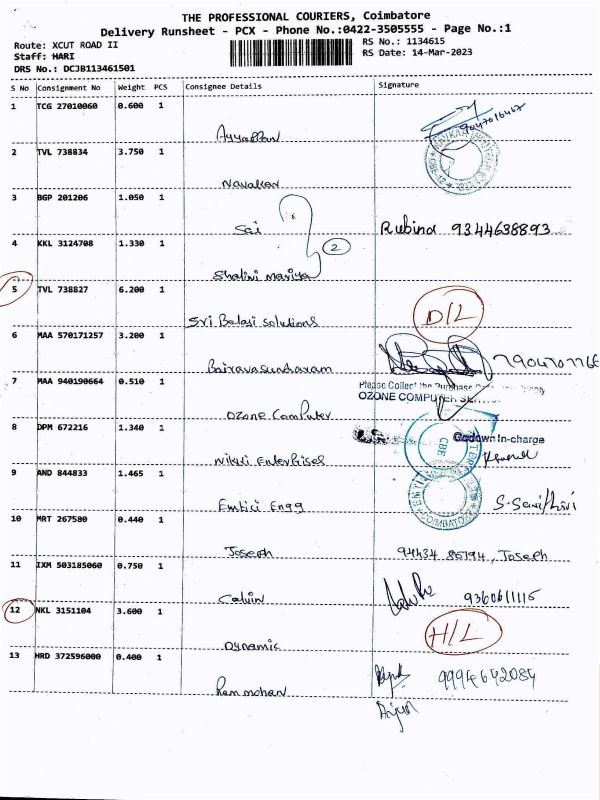 THE PROFESSIONAL COURIERS, Coimbatore
Delivery Runsheet - PCX - Phone No.:0422-3505555 - Page No.:1
Route: XCUT ROAD II RS No.: 1134615
Staff: HARI RS Date: 14-Mar-2023
DRS No.: DCJB113461501
S No Consignment No Weight PCS Consignee Details Signature
1 TCG 27010060 0.600 1
Ayyappan
2 TVL 738834 3.750 1
Navakar
3 BGP 201206 1.050 1
Sai Rubina 9344638893
4 KKL 3124708 1.330 1
2
Shalini mariya
5 TVL 738827 6.200 1
Sri Balaji Solutions D/L
6 MAA 570171257 3.200 1
Bairavasundharam
7 MAA 940190664 0.510 1
Please Collect the Purchase
OZONE COMPUTER
Ozone Computer
8 DPM 672216 1.340 1
Godown In-charge
CBE
Nikki Enterprises
9 AND 844833 1.465 1
Embici Engg
COIMBATORE
10 MRT 267580 0.440 1
Joseph 94434 85794, Joseph
11 IXM 503185060 0.750 1
Calvin 9360611115
12 NKL 3151104 3.600 1
Dynamic H/L
13 HRD 372596000 0.400 1
Ram mohan 9994642084
Arjun